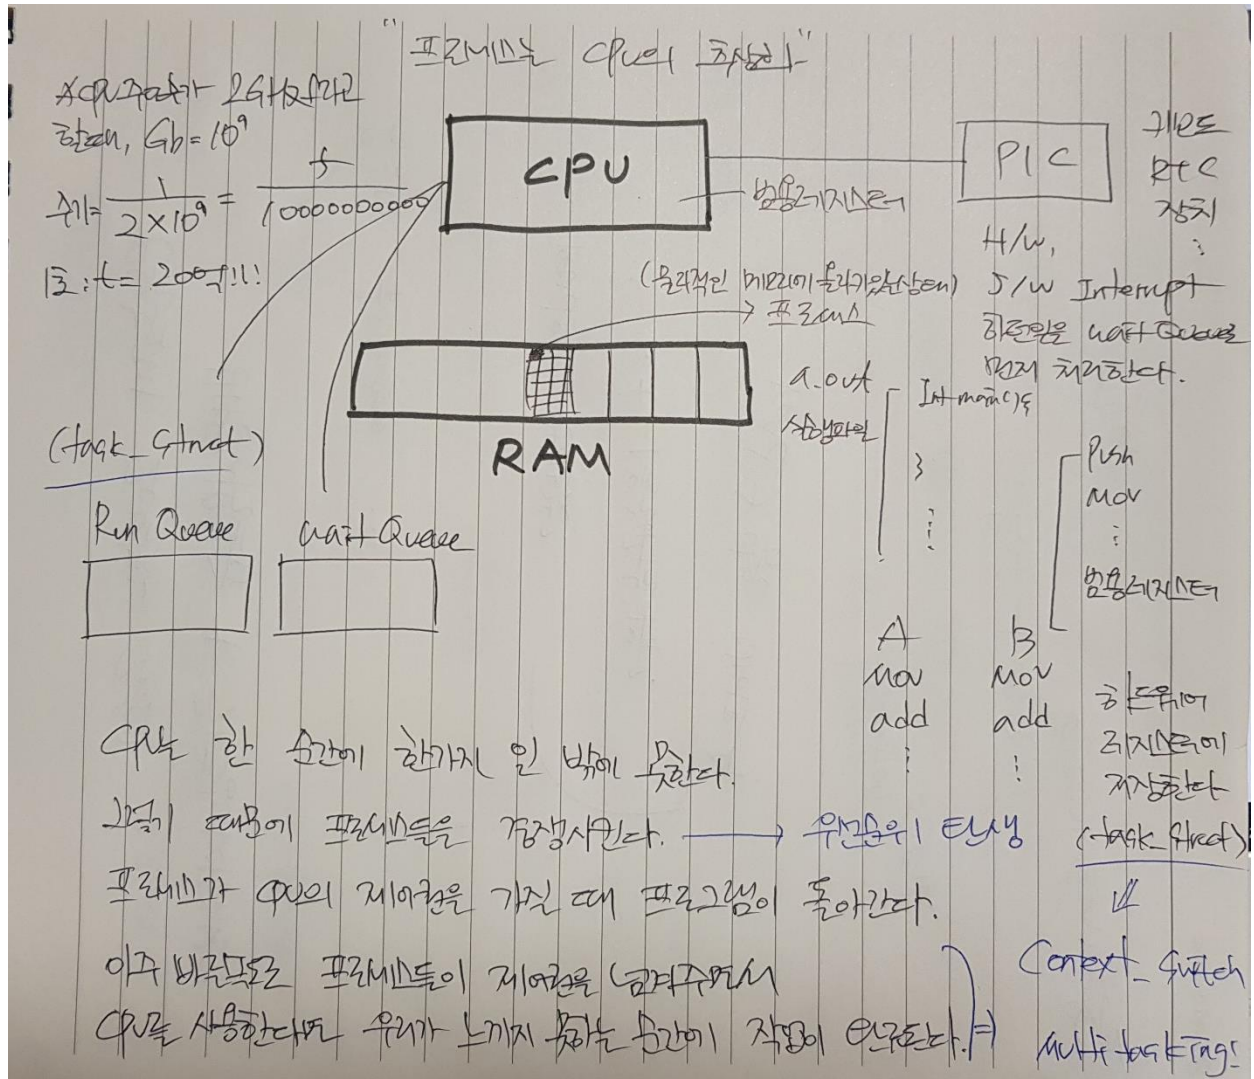 "프로세스는 CPU의 추상화"
※ CPU 주파수가 2GHz라고
할때, Gb = 10⁹
주기 = 1 / 2×10⁹ = 5 / 10000000000
1초 : t = 20억!!!
CPU
범용레지스터
PIC
키보드
RTC
장치
⋮
H/W,
S/W Interrupt
wait Queue로
먼저 처리한다.
(물리적인 메모리에 올라가있는상태)
프로세스
RAM
a.out
실행파일
Int main(){
}
⋮
Push
Mov
⋮
범용레지스터
(task_struct)
Run Queue
wait Queue
A
Mov
add
⋮
B
Mov
add
⋮
하드웨어
레지스터에
저장한다
(task_struct)
CPU는 한 순간에 한가지 일 밖에 못한다.
그렇기 때문에 프로세스들을 경쟁시킨다. → 우선순위 탄생
프로세스가 CPU의 제어권을 가질 때 프로그램이 돌아간다.
아주 빠른속도로 프로세스들이 제어권을 넘겨주면서
CPU를 사용한다면 우리가 느끼지 못하는 순간에 작업이 완료된다. ⇒
Context_Switch